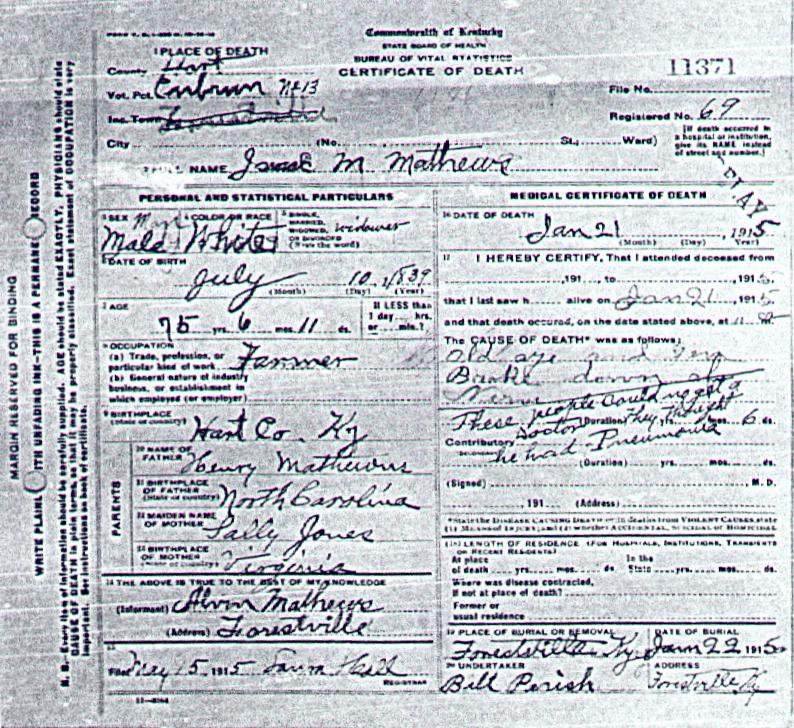 Commonwealth of Kentucky
STATE BOARD OF HEALTH
BUREAU OF VITAL STATISTICS
CERTIFICATE OF DEATH
1 PLACE OF DEATH
County Hart
Vot. Pct. No 13
Inc. Town
City (No. St.; Ward)
11371
File No.
Registered No. 69
[If death occurred in a hospital or institution, give its NAME instead of street and number.]
2 FULL NAME Isaac M Mathews
PERSONAL AND STATISTICAL PARTICULARS
3 SEX Male
4 COLOR OR RACE White
5 SINGLE, MARRIED, WIDOWED, OR DIVORCED (Write the word) widower
6 DATE OF BIRTH
July 10, 1839
(Month) (Day) (Year)
7 AGE
75 yrs. 6 mos. 11 ds.
If LESS than 1 day ... hrs. or ... min.?
8 OCCUPATION
(a) Trade, profession, or particular kind of work Farmer
(b) General nature of industry business, or establishment in which employed (or employer)
9 BIRTHPLACE
(State or country)
Hart Co. Ky
PARENTS
10 NAME OF FATHER Henry Mathews
11 BIRTHPLACE OF FATHER (State or country) North Carolina
12 MAIDEN NAME OF MOTHER Sally Jones
13 BIRTHPLACE OF MOTHER (State or country) Virginia
14 THE ABOVE IS TRUE TO THE BEST OF MY KNOWLEDGE
(Informant) Alvin Mathews
(Address) Forestville
15
Filed May 15 1915
REGISTRAR
MEDICAL CERTIFICATE OF DEATH
16 DATE OF DEATH
Jan 21, 1915
(Month) (Day) (Year)
MAY
17 I HEREBY CERTIFY, That I attended deceased from
, 191 , to , 1915
that I last saw h alive on Jan 21, 1915
and that death occurred, on the date stated above, at 11 m.
The CAUSE OF DEATH* was as follows:
Old age and
down
These people could not get a
Doctor They thought
he had Pneumonia
(Duration) yrs. mos. 6 ds.
Contributory
(Duration) yrs. mos. ds.
(Signed) M.D.
, 191 (Address)
*State the DISEASE CAUSING DEATH or in deaths from VIOLENT CAUSES, state (1) MEANS OF INJURY; and (2) whether ACCIDENTAL, SUICIDAL OR HOMICIDAL
18 LENGTH OF RESIDENCE (FOR HOSPITALS, INSTITUTIONS, TRANSIENTS OR RECENT RESIDENTS)
At place of death yrs. mos. ds.
In the State yrs. mos. ds.
Where was disease contracted,
If not at place of death?
Former or
usual residence
19 PLACE OF BURIAL OR REMOVAL Forestville Ky
DATE OF BURIAL Jan 22 1915
20 UNDERTAKER Bill Perish
ADDRESS Forestville Ky
MARGIN RESERVED FOR BINDING
WRITE PLAINLY WITH UNFADING INK—THIS IS A PERMANENT RECORD
N. B. Every item of information should be carefully supplied. AGE should be stated EXACTLY. PHYSICIANS should state
CAUSE OF DEATH in plain terms, so that it may be properly classified. Exact statement of OCCUPATION is very
important. See instructions on back of certificate.